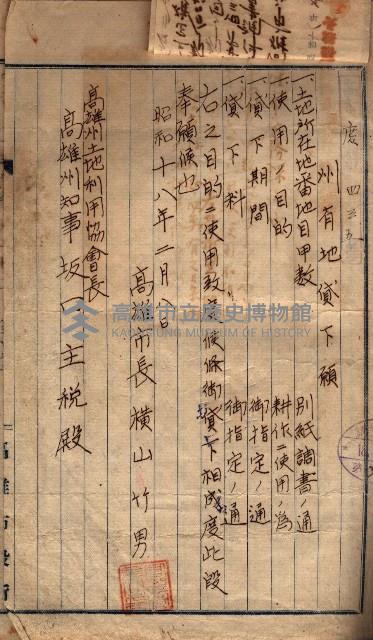 度四三五号
州有地貸下願
一、土地所在地番地目甲数 別紙調書ノ通
一、使用ノ目的 耕作ニ使用ノ為
一、貸下期間 御指定ノ通
一、貸下料 御指定ノ通
右之目的ニ使用致度候條御貸下相成度此段
奉願候也
昭和十八年二月 日
高雄市長 横山竹男
高雄州土地利用協會長
高雄州知事 坂口主税殿
高雄市役所
高雄市立歷史博物館
KAOHSIUNG MUSEUM OF HISTORY